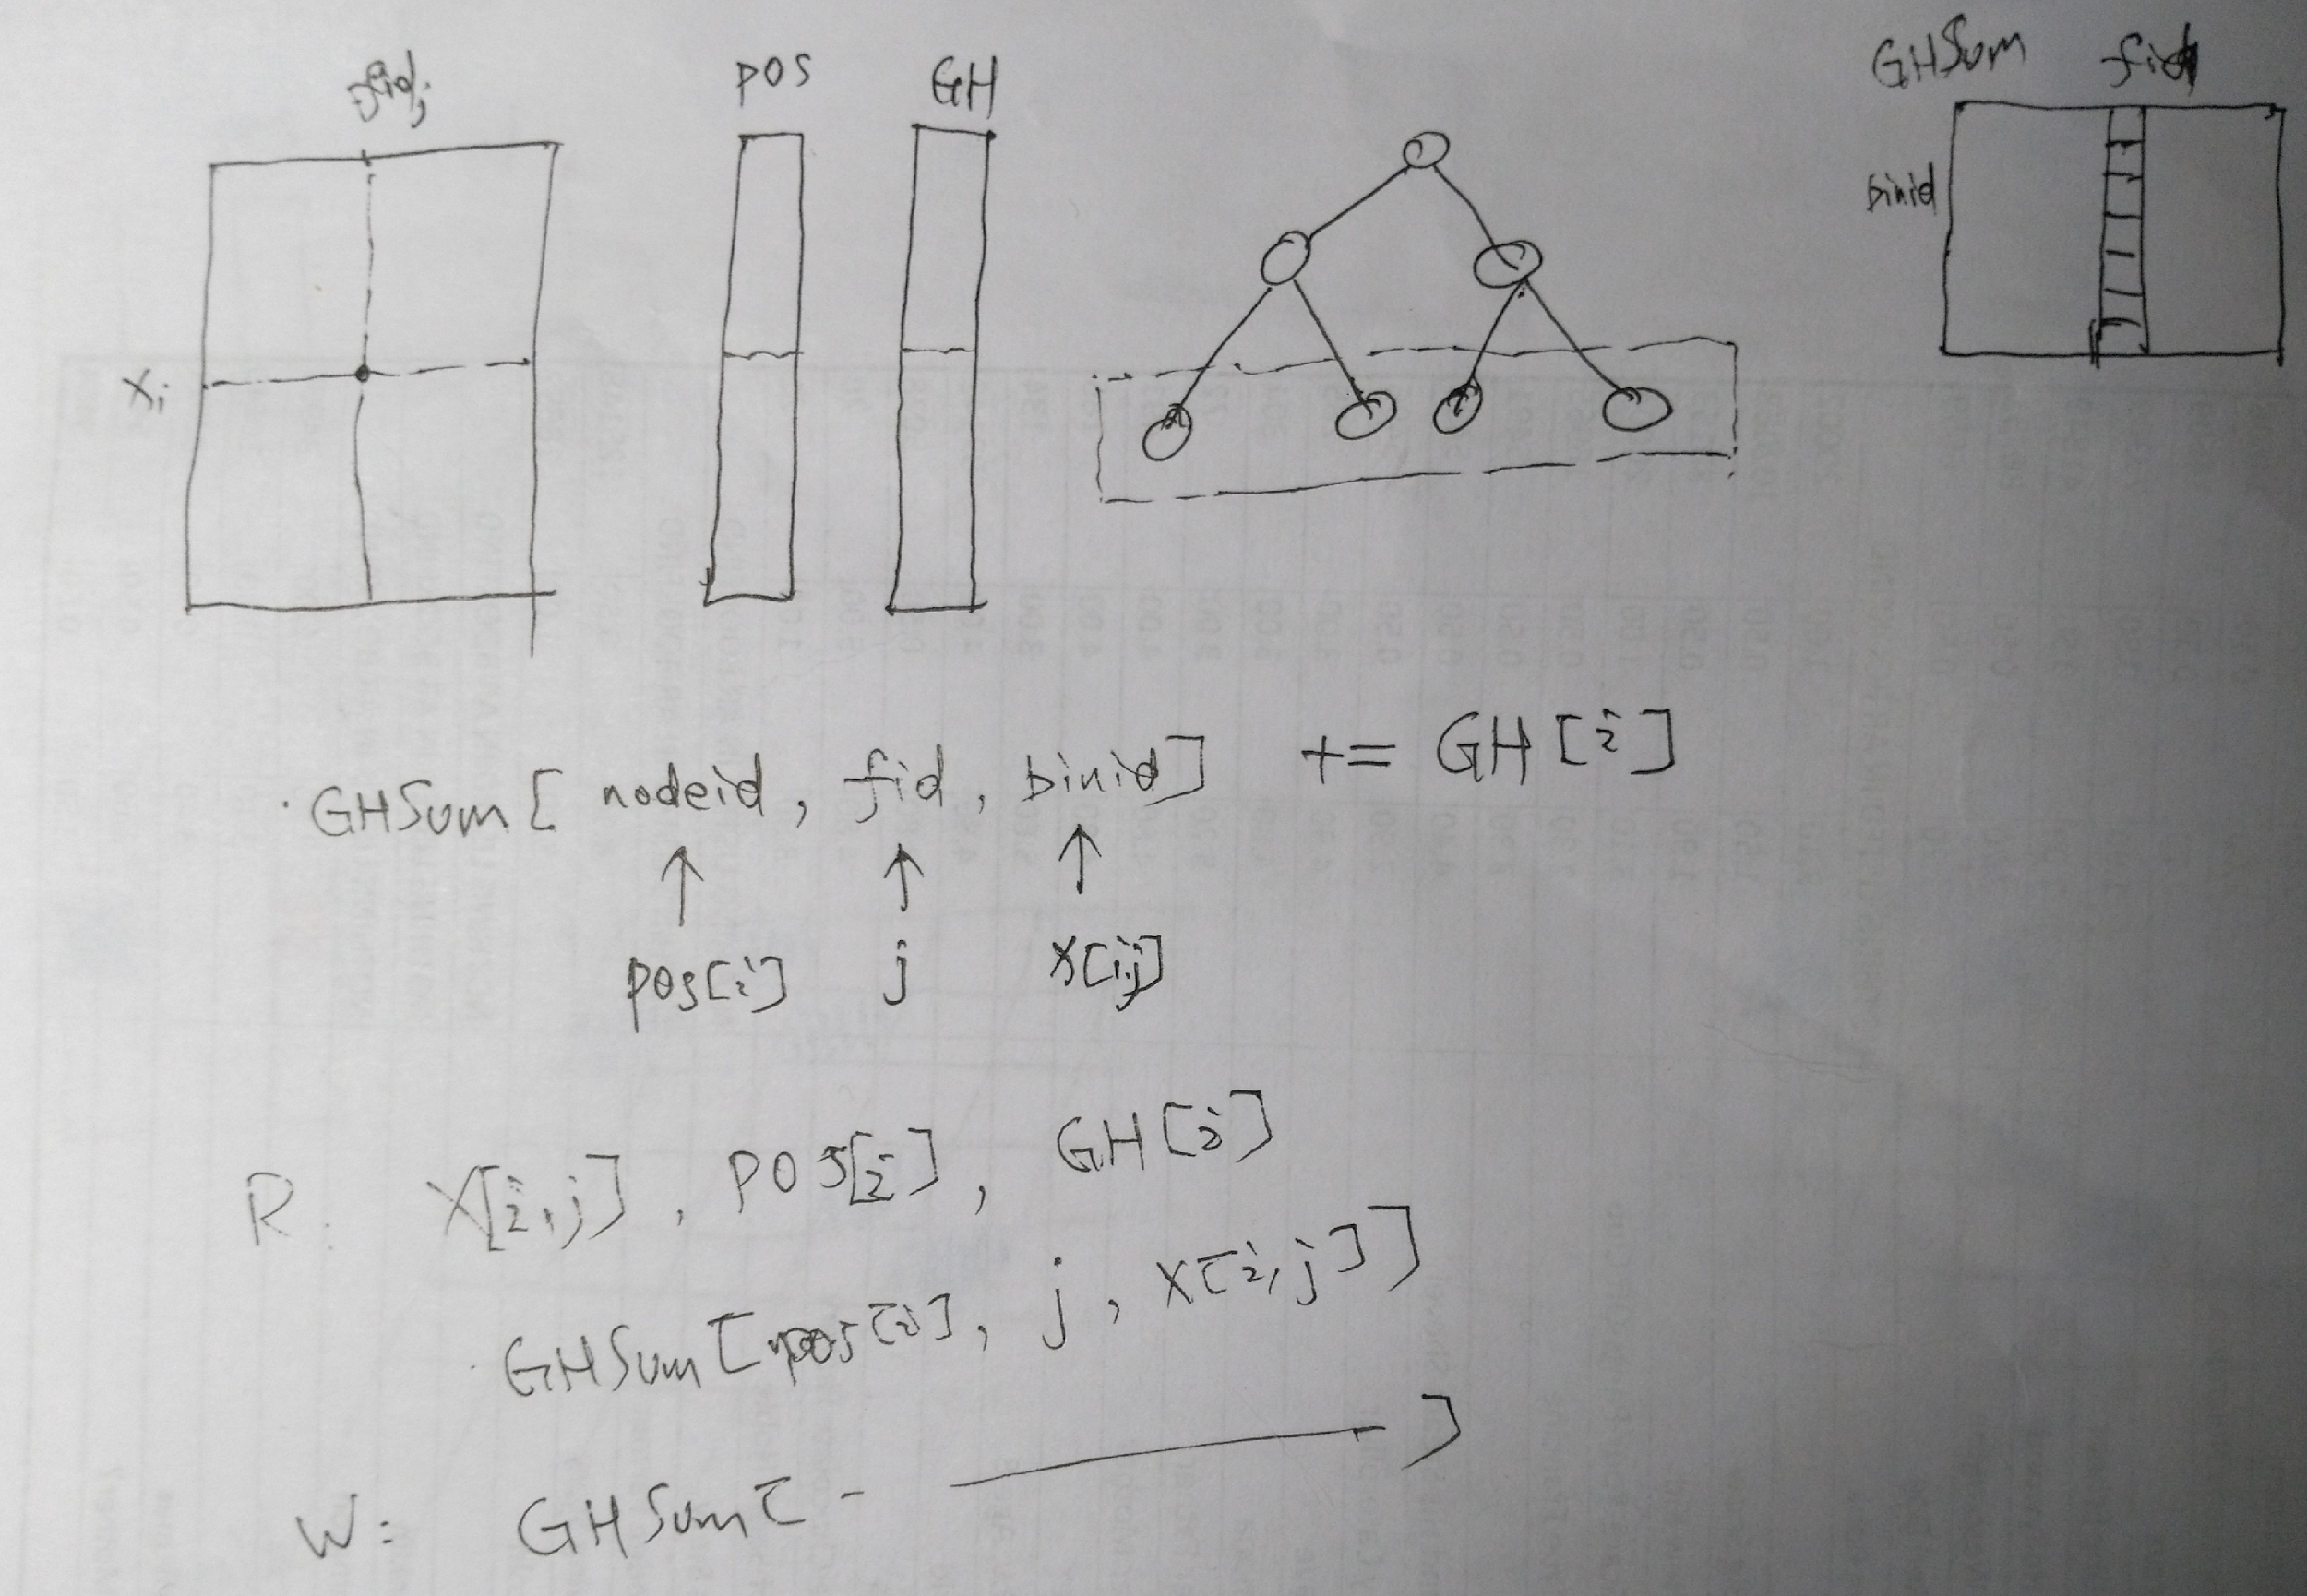 POS GH GHSum fid
binid
Xi
GHSum [ nodeid, fid, binid ] += GH [i]
↑ ↑ ↑
pos[i] j x[i,j]
R: X[i,j], POS[i], GH[i]
GHSum [pos[i], j, x[i,j]]
W: GHSum[ - ——— ]